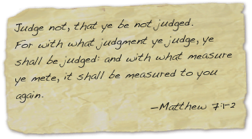 Judge not, that ye be not judged.
For with what judgment ye judge, ye
shall be judged: and with what measure
ye mete, it shall be measured to you
again.
—Matthew 7:1-2